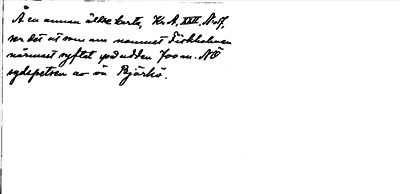 Å en annan äldre karta, Kr. A. XXII. N:o 8,
ser det ut som om namnet Fiskholmen
närmast syftat på udden 700 m. NÖ
sydspetsen av ön Björkö.